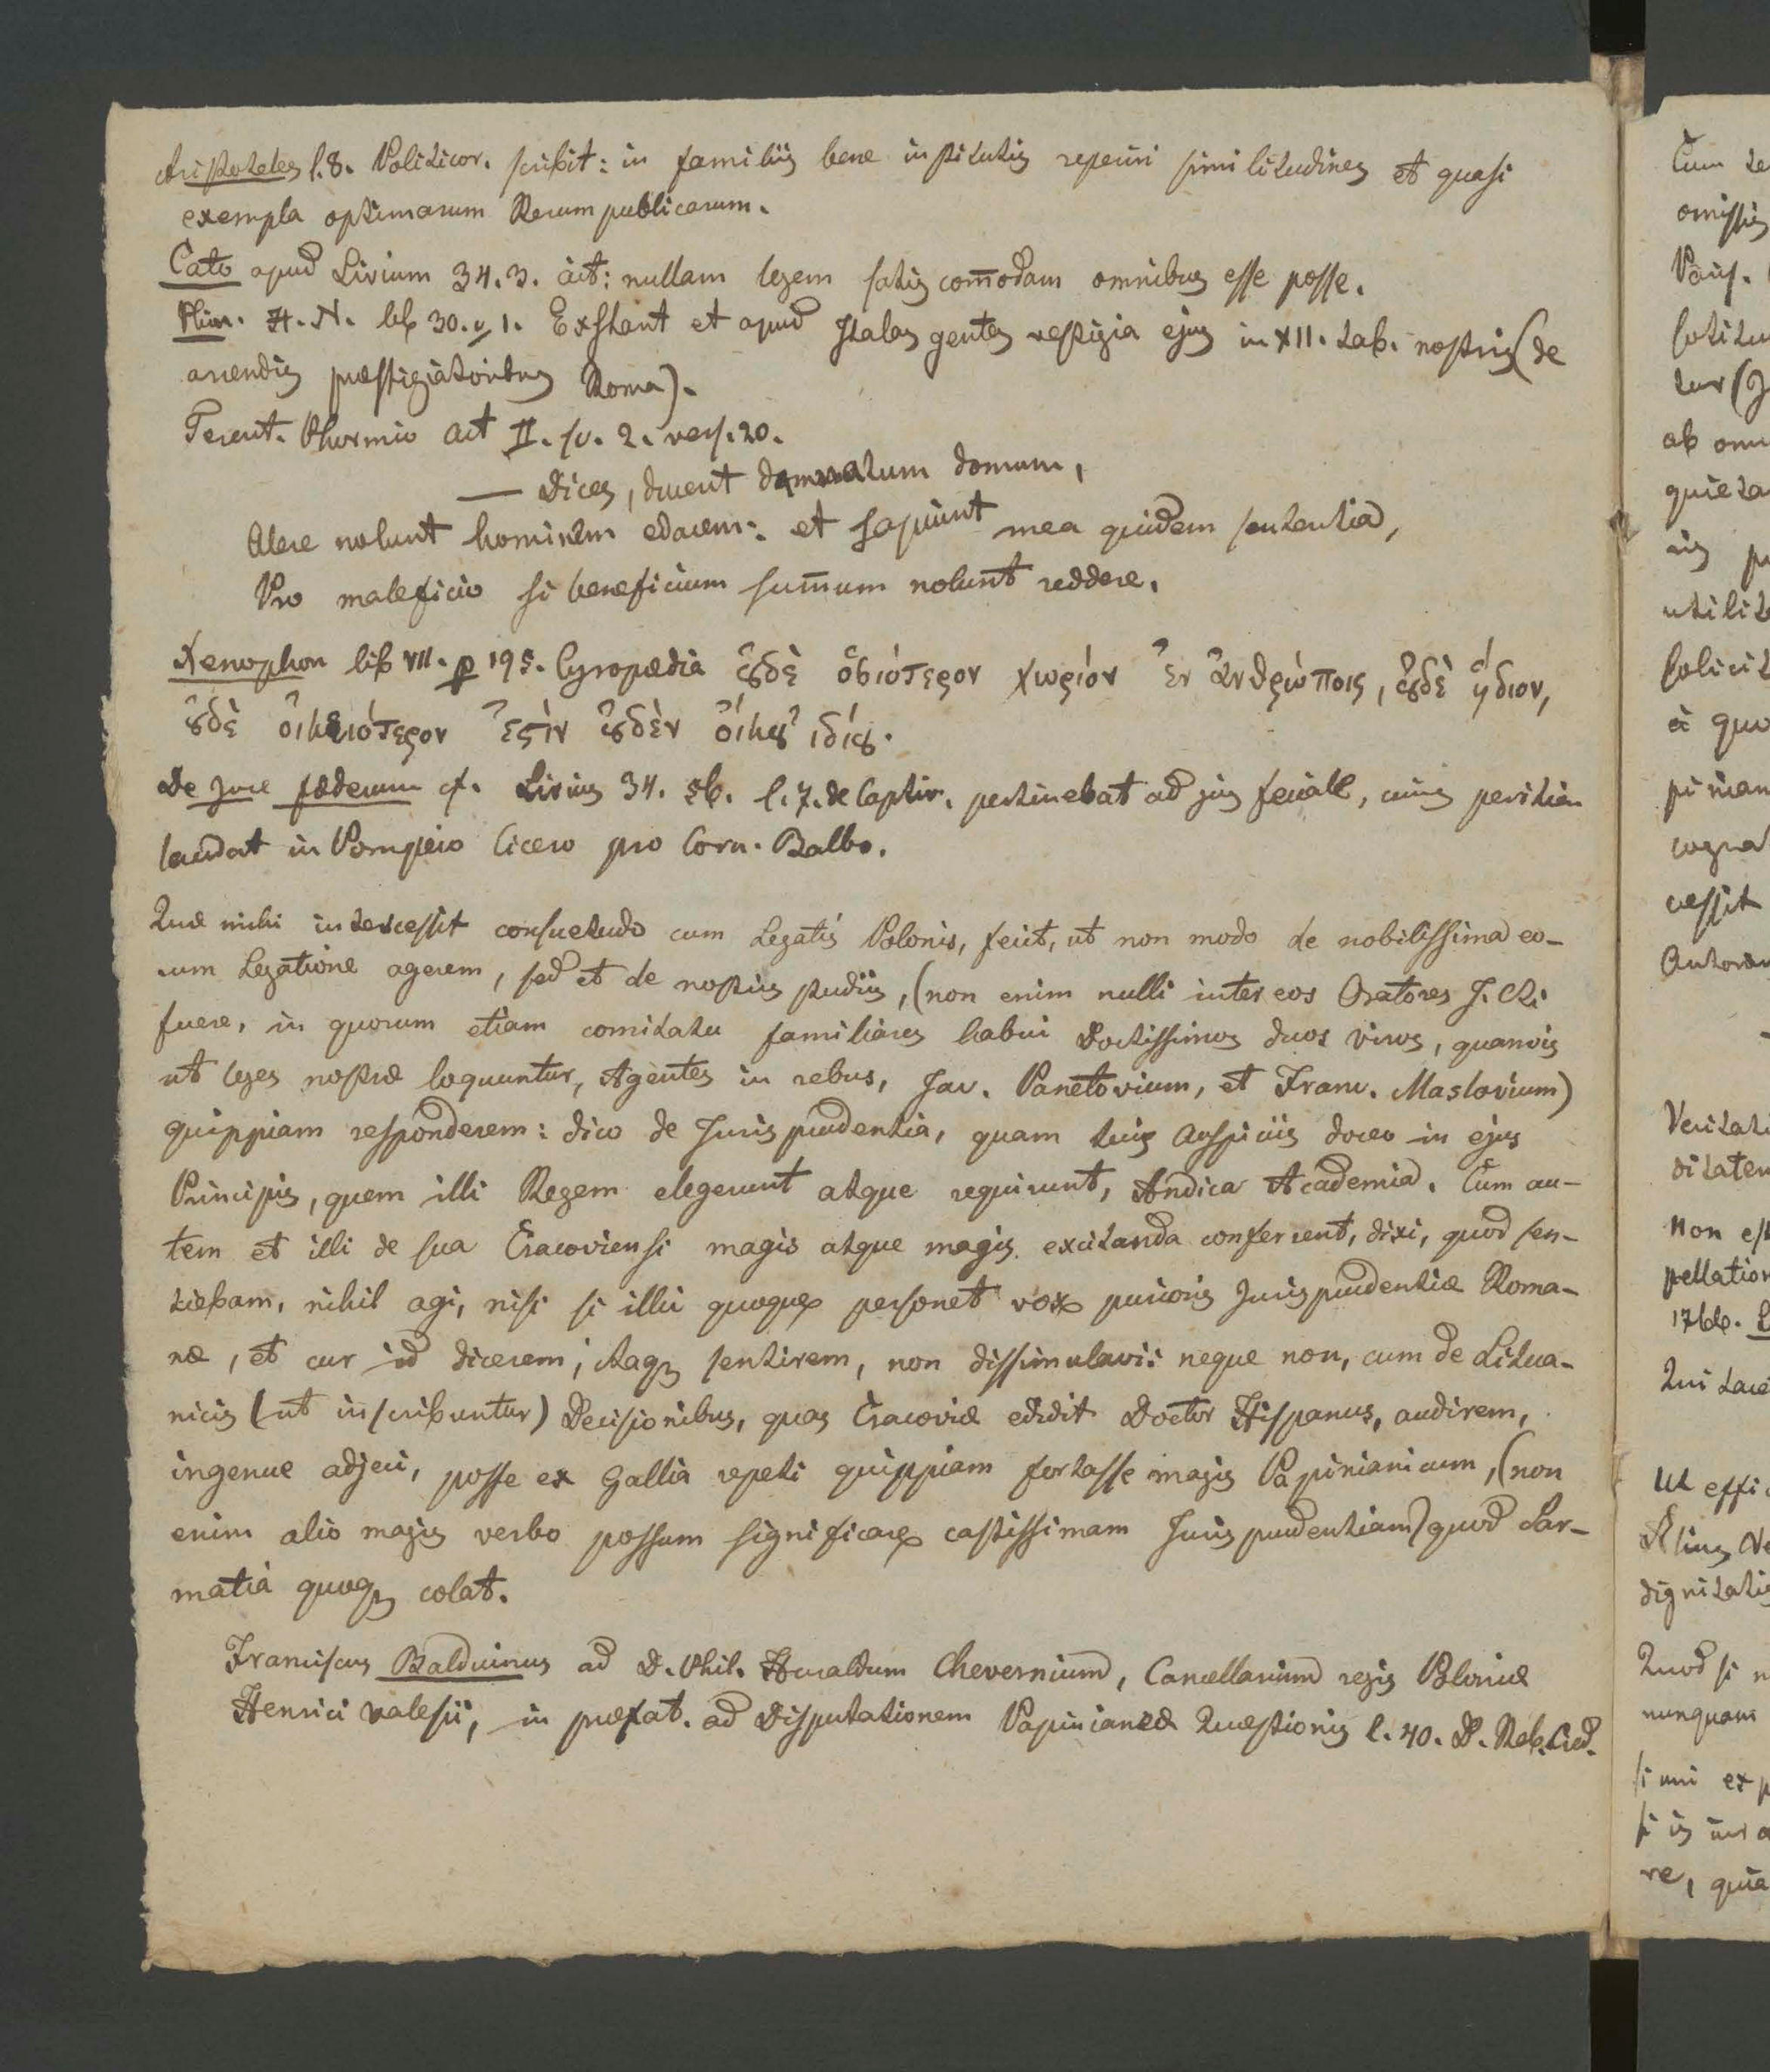 Aristoteles l. 8. Politicor. scribit: in familiis bene institutis reperiri similitudines et quasi
exempla optimarum Rerum publicarum.
Cato apud Livium 34. 3. ait: nullam legem satis com̄odam omnibus esse posse.
Plin. H. N. lib 30. c. 1. Exstant et apud Italas gentes vestigia ejus in XII. tab. nostris (de
arcendis præstigiatoribus Roma).
Terent. Phormio act II. sc. 2. vers. 20.
— Dices, ducent damnatum domum,
Alere nolunt hominem edacem: et sapiunt mea quidem sententia,
Pro maleficio si beneficium sum̄um nolunt reddere.
Xenophon lib VII. p 195. Cyropædia ȣ̓δὲ ὁσιότερον χωρίον ἐν ἀνθρώποις, ȣ̓δὲ ἥδιον,
ȣ̓δὲ οἰκειότερον ἐςὶν ȣ̓δὲν οἴκȣ ἰδίȣ.
De Jure fœderum cf. Livius 34. 56. l. 7. de Captiv. pertinebat ad jus feciale, cuius peritiam
laudat in Pompeio Cicero pro Corn. Balbo.
Quæ mihi intercessit consuetudo cum Legatis Polonis, fecit, ut non modo de nobilissima eo-
rum Legatione agerem, sed et de nostris studiis, (non enim nulli inter eos Oratores J. Cti
fuere, in quorum etiam comitatu familiares habui Doctissimos duos viros, quamvis
ut leges nostræ loquuntur, Agentes in rebus, Jac. Panetovium, et Franc. Maslovium)
quippiam responderem: dico de Jurisprudentia, quam tuis Auspiciis doceo in ejus
Principis, quem illi Regem elegerunt atque requirunt, Andica Academia. Cum au-
tem et illi de sua Cracoviensi magis atque magis excitanda conferrent, dixi, quod sen-
tiebam, nihil agi, nisi si illic quoque personet vox purioris Jurisprudentiæ Roma-
næ, et cur id dicerem, itaq; sentirem, non dissimulavi: neque non, cum de Litua-
nicis (ut inscribuntur) Decisionibus, quas Cracoviæ edidit Doctor Hispanus, audirem,
ingenue adjeci, posse ex Gallia repeti quippiam fortasse magis Papinianicum, (non
enim alio magis verbo possum significare castissimam Jurisprudentiam) quod Sar-
matia quoq; colat.
Franciscus Balduinus ad D. Phil. Huraldum Chevernium, Cancellarium regis Poloniæ
Henrici Valesii, in præfat. ad Disputationem Papinianeæ Quæstionis l. 40. D. Reb. Cred.